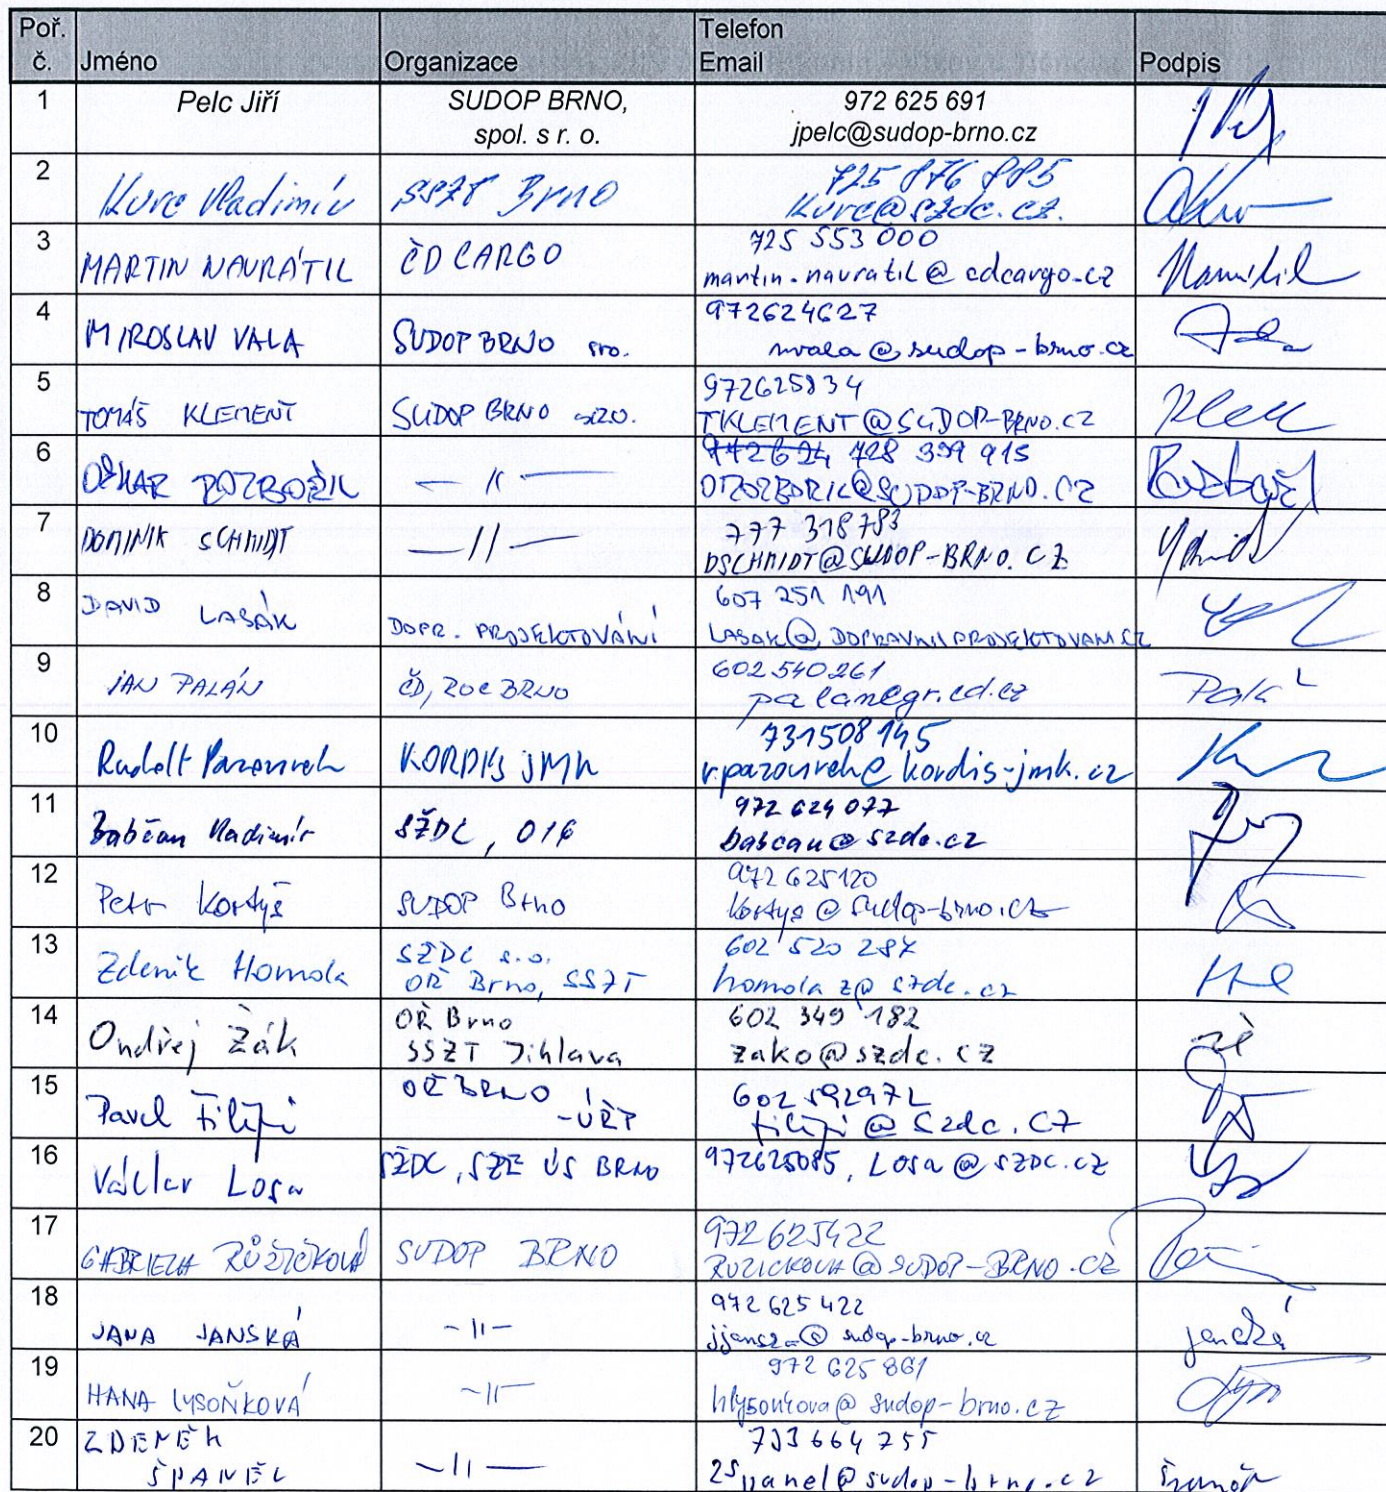 Poř. č. Jméno Organizace Telefon Email Podpis
1 Pelc Jiří SUDOP BRNO, spol. s r. o. 972 625 691 jpelc@sudop-brno.cz
2 Kurc Vladimír SSZT Brno 725 876 885 Kurc@szdc.cz.
3 MARTIN NAVRÁTIL ČD CARGO 725 553 000 martin.navratil@cdcargo.cz
4 MIROSLAV VALA SUDOP BRNO sro. 972624627 mvala@sudop-brno.cz
5 TOMÁŠ KLEMENT SUDOP BRNO s.r.o. 972625834 TKLEMENT@SUDOP-BRNO.CZ
6 — 11 — 728 399 915
7 DOMINIK SCHMIDT —11— 777 318 783 DSCHMIDT@SUDOP-BRNO.CZ
8 DAVID LASÁK DOPR. PROJEKTOVÁNÍ 607 251 191
9 JAN PALÁN ČD, ROC BRNO 602 540 261
10 KORDIS JMK 731508 145 r.pazourek@kordis-jmk.cz
11 Babčan Vladimír SŽDC, O16 972 624 077 babcan@szdc.cz
12 Petr Kostyš SUDOP Brno 972 625120
13 Zdeněk Homola SŽDC s.o. OŘ Brno, SSZT 602 520 287 homola z@szdc.cz
14 Ondřej Žák OŘ Brno SSZT Jihlava 602 349 182 zako@szdc.cz
15 Pavel Filipi OŘ BRNO - ÚŘP 602 592972 filipi@szdc.cz
16 Václav Losa SŽDC, SZE ÚS BRNO 972625085, Losa@SZDC.CZ
17 GABRIELA RŮŽIČKOVÁ SUDOP BRNO 972 625422 RUZICKOVA@SUDOP-BRNO.CZ
18 JANA JANSKÁ -11- 972 625 422
19 HANA LYSOŇKOVÁ -11- 972 625 861 hlysonkova@sudop-brno.cz
20 ZDENĚK ŠPANĚL -11- 733 664 755 zspanel@sudop-brno.cz